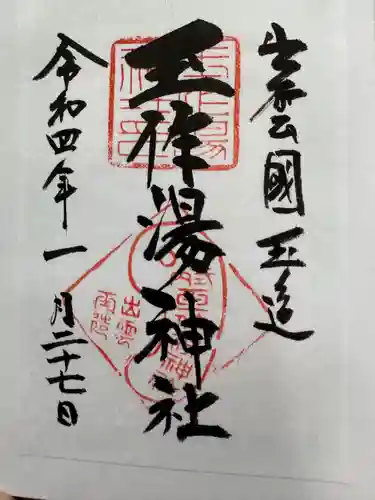 出雲國玉造
玉作湯神社
令和四年一月二十七日
出雲
玉造